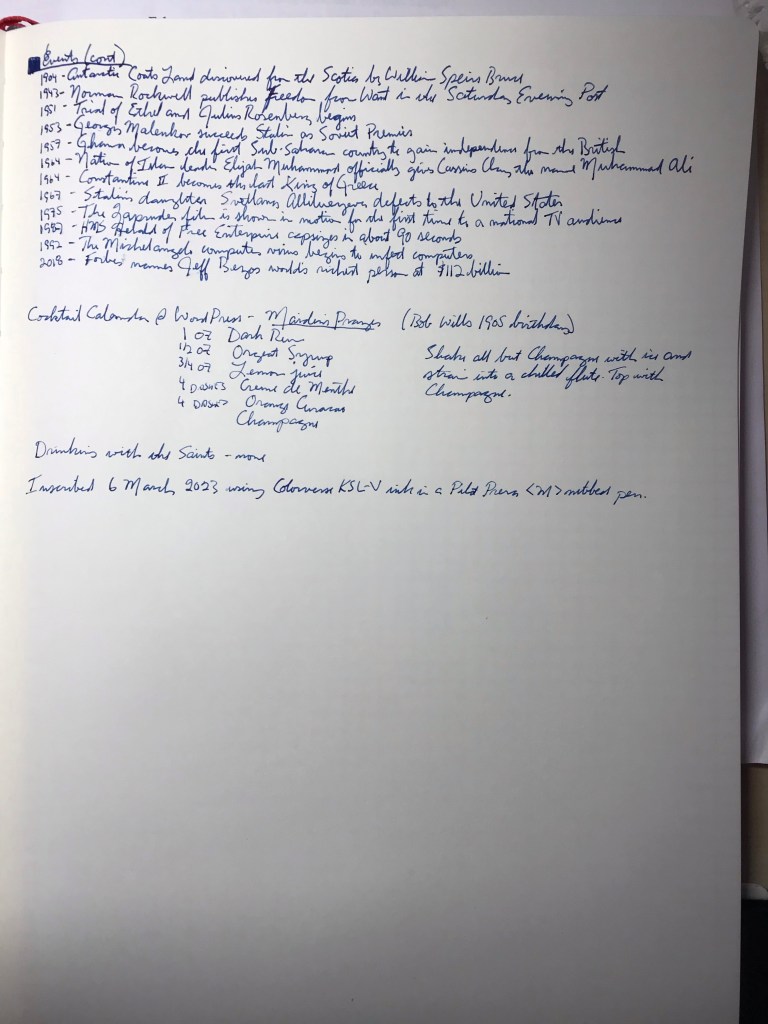 Events (cont)
1904 - Antarctic Coats Land discovered from the Scotia by William Speirs Bruce
1943 - Norman Rockwell publishes Freedom from Want in the Saturday Evening Post
1951 - Trial of Ethel and Julius Rosenberg begins
1953 - Georgy Malenkov succeeds Stalin as Soviet Premier
1957 - Ghana becomes the first Sub-Saharan country to gain independence from the British
1964 - Nation of Islam leader Elijah Muhammad officially gives Cassius Clay the name Muhammad Ali
1964 - Constantine II becomes the last King of Greece
1967 - Stalin's daughter Svetlana Alliluyeva defects to the United States
1975 - The Zapruder film is shown in motion for the first time to a national TV audience
1987 - HMS Herald of Free Enterprise capsizes in about 90 seconds
1992 - The Michelangelo computer virus begins to infect computers
2018 - Forbes names Jeff Bezos world's richest person at $112 billion
Cocktail Calendar @ WordPress - (Bob Wills 1905 birthday)
1 oz Dark Rum
1/2 oz Orgeat Syrup
3/4 oz Lemon juice
4 dashes Creme de Menthe
4 dashes Orange Curacao
Champagne
Shake all but Champagne with ice and
strain into a chilled flute. Top with
Champagne.
Drinking with the Saints - none
Inscribed 6 March 2023 using Colorverse KSL-V ink in a Pilot Prera <M> nibbed pen.